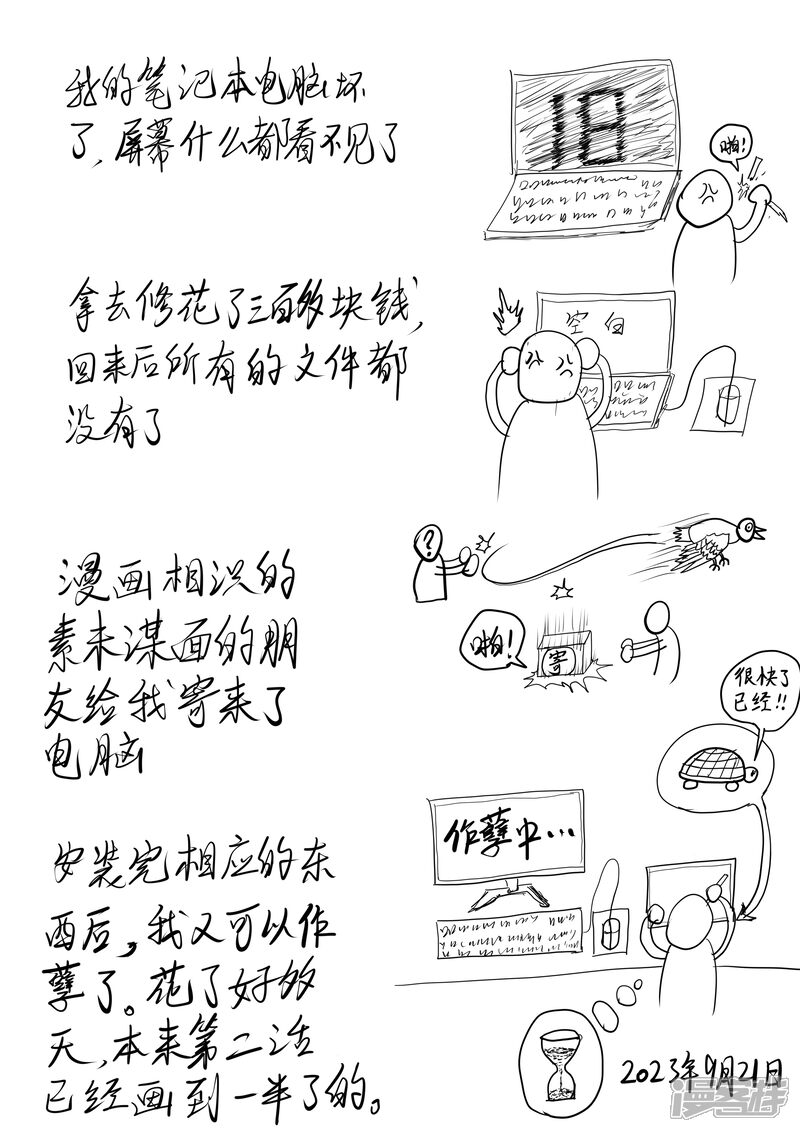 我的笔记本电脑坏
了,屏幕什么都看不见了
18
啪!
拿去修花了三百多块钱,
回来后所有的文件都
没有了
空白
漫画相识的
素未谋面的朋
友给我寄来了
电脑
?
啪!
寄
很快了
已经!!
安装完相应的东
西后,我又可以作
孽了。花了好多
天,本来第二话
已经画到一半了的。
作孽中...
2023年9月21日
漫客栈